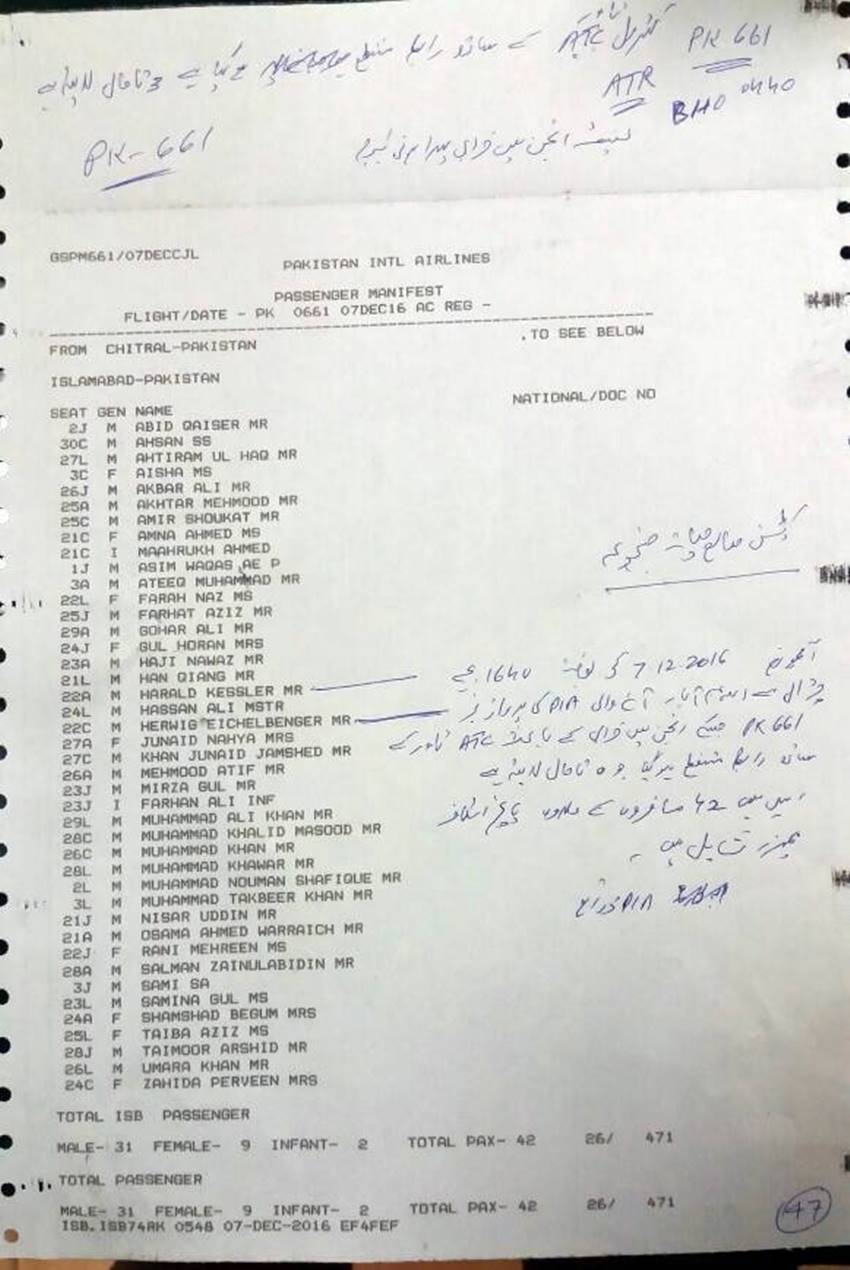 PK 661 کنٹرول ٹاور ATC کے ساتھ رابطہ منقطع ہے
ATR
BHO 0440
PK-661
انجن میں خرابی پیدا ہوئی
GSPM661/07DECCJL
PAKISTAN INTL AIRLINES
PASSENGER MANIFEST
FLIGHT/DATE - PK 0661 07DEC16 AC REG -
FROM CHITRAL-PAKISTAN .TO SEE BELOW
ISLAMABAD-PAKISTAN
NATIONAL/DOC NO
SEAT GEN NAME
2J M ABID QAISER MR
30C M AHSAN SS
27L M AHTIRAM UL HAQ MR
3C F AISHA MS
26J M AKBAR ALI MR
25A M AKHTAR MEHMOOD MR
25C M AMIR SHOUKAT MR
21C F AMNA AHMED MS
21C I MAAHRUKH AHMED
1J M ASIM WAQAS AE P
3A M ATEEQ MUHAMMAD MR
22L F FARAH NAZ MS
25J M FARHAT AZIZ MR
29A M GOHAR ALI MR
24J F GUL HORAN MRS
23A M HAJI NAWAZ MR
21L M HAN QIANG MR
22A M HARALD KESSLER MR
24L M HASSAN ALI MSTR
22C M HERWIG EICHELBENGER MR
27A F JUNAID NAHYA MRS
27C M KHAN JUNAID JAMSHED MR
26A M MEHMOOD ATIF MR
23J M MIRZA GUL MR
23J I FARHAN ALI INF
29L M MUHAMMAD ALI KHAN MR
28C M MUHAMMAD KHALID MASOOD MR
26C M MUHAMMAD KHAN MR
28L M MUHAMMAD KHAWAR MR
2L M MUHAMMAD NOUMAN SHAFIQUE MR
3L M MUHAMMAD TAKBEER KHAN MR
21J M NISAR UDDIN MR
21A M OSAMA AHMED WARRAICH MR
22J F RANI MEHREEN MS
28A M SALMAN ZAINULABIDIN MR
3J M SAMI SA
23L M SAMINA GUL MS
24A F SHAMSHAD BEGUM MRS
25L F TAIBA AZIZ MS
28J M TAIMOOR ARSHID MR
26L M UMARA KHAN MR
24C F ZAHIDA PERVEEN MRS
کیپٹن صالح جنجوعہ
7-12-2016 کو بوقت 1640 بجے
چترال سے اسلام آباد آنے والی PIA کی پرواز نمبر
PK 661 جسکے انجن میں خرابی کے باعث ATC ٹاور کے
ساتھ رابطہ منقطع ہو گیا جو تاحال لاپتہ ہے
اس میں 42 مسافروں کے علاوہ پانچ سٹاف
ممبرز شامل ہیں -
PIA
TOTAL ISB PASSENGER
MALE- 31 FEMALE- 9 INFANT- 2 TOTAL PAX- 42 26/ 471
TOTAL PASSENGER
MALE- 31 FEMALE- 9 INFANT- 2 TOTAL PAX- 42 26/ 471
ISB.ISB74RK 0548 07-DEC-2016 EF4FEF
47